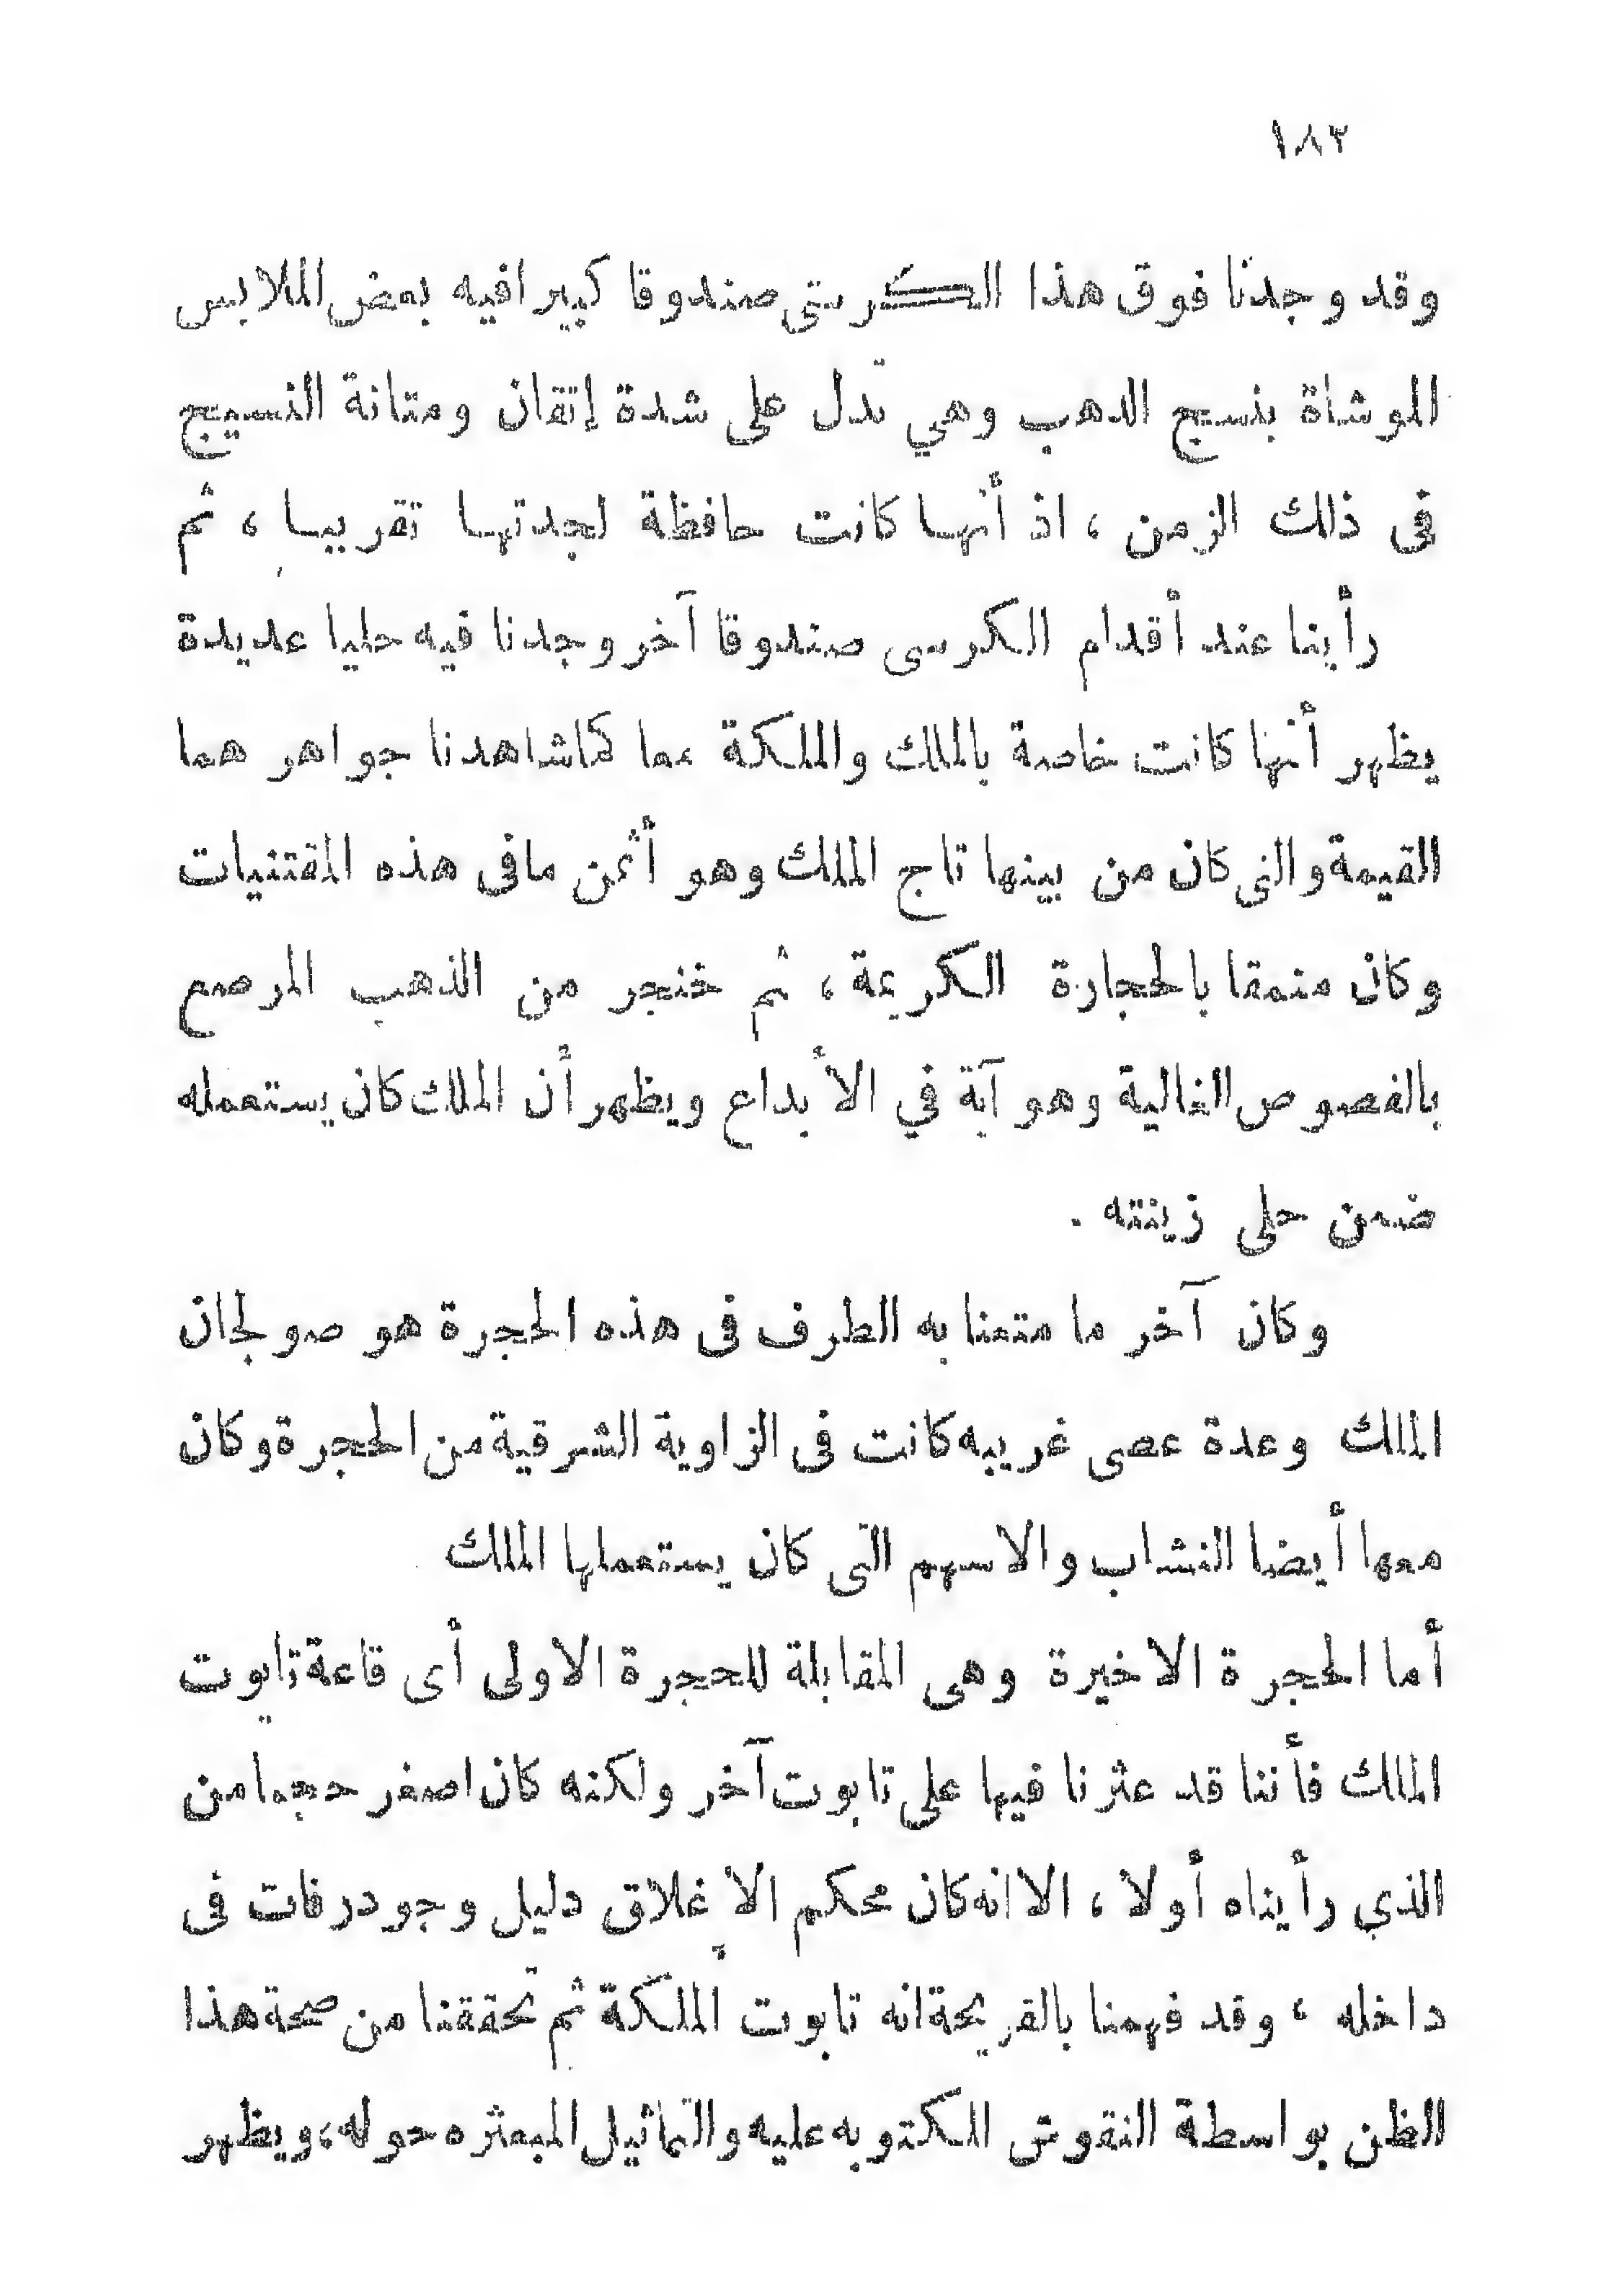 ١٨٢
وقد وجدنا فوق هذا الكرسى صندوقا كبيرا فيه بعض الملابس
الموشاة بنسيج الذهب وهي تدل على شدة إتقان ومتانة النسيج
فى ذلك الزمن ، اذ أنها كانت حافظة لجدتها تقريبا ، ثم
رأينا عند أقدام الكرسى صندوقا آخر وجدنا فيه حليا عديدة
يظهر أنها كانت خاصة بالملك والملكة معا كماشاهدنا جواهر هما
القيمة والتى كان من بينها تاج الملك وهو أثمن مافى هذه المقتنيات
وكان منمقا بالحجارة الكريمة ، ثم خنجر من الذهب المرصع
بالفصوص الغالية وهو آية في الأبداع ويظهر أن الملك كان يستعمله
ضمن حلى زينته .
وكان آخر ما متعنا به الطرف فى هذه الحجرة هو صولجان
الملك وعدة عصى غريبه كانت فى الزاوية الشرقية من الحجرة وكان
معها أيضا النشاب والاسهم التى كان يستعملها الملك
أما الحجرة الاخيرة وهى المقابلة للحجرة الاولى أى قاعة تابوت
الملك فأننا قد عثرنا فيها على تابوت آخر ولكنه كان اصغر حجما من
الذي رأيناه أولا ، الا انه كان محكم الاغلاق دليل وجود رفات فى
داخله ، وقد فهمنا بالقريحة انه تابوت الملكة ثم تحققنا من صحة هذا
الظن بواسطة النقوش المكتوبه عليه والتماثيل المبعثره حوله ، ويظهر